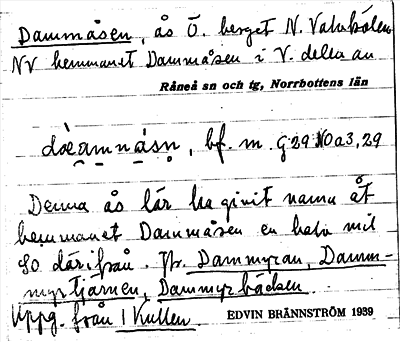 Dammåsen, ås Ö. berget N. Valvkölen
NV hemmanet Dammåsen i V. delen av
Råneå sn och tg, Norrbottens län
bf. m. G 29 NO a3, 29
Denna ås lär ha givit namn åt
hemmanet Dammåsen en halv mil
SO därifrån. Jfr. Dammyran, Damm-
myrtjärnen, Dammyrbäcken.
Uppg. från 1 Kullen.
EDVIN BRÄNNSTRÖM 1939